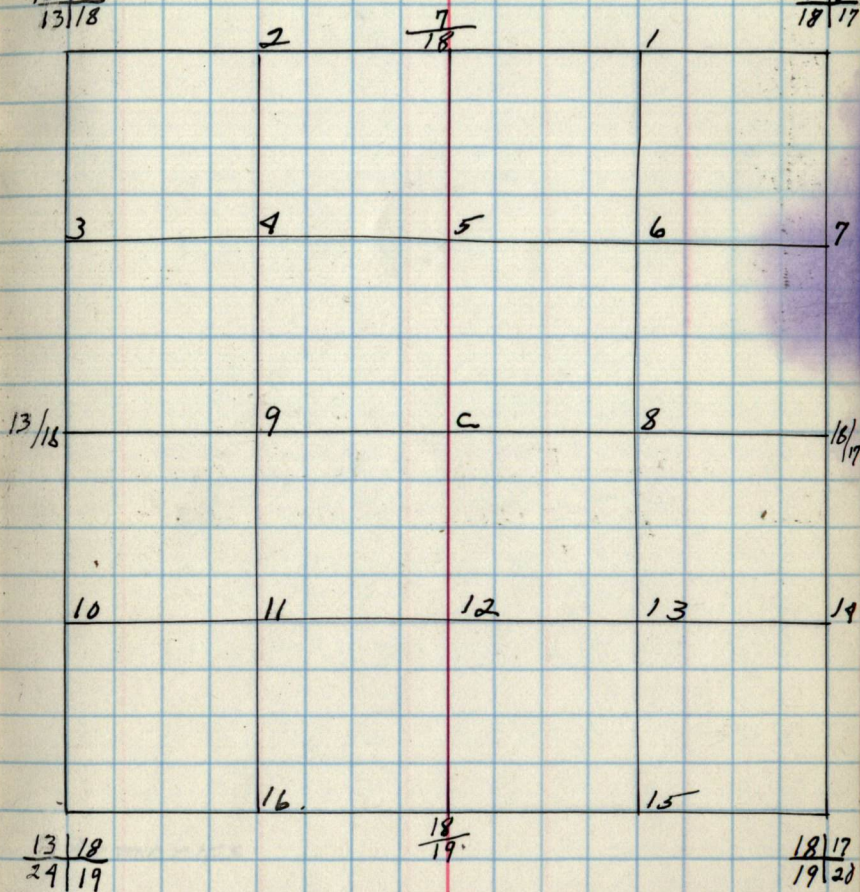 13|18 7/18 18|17
2 1
3 4 5 6 7
13/18 9 C 8 18/17
10 11 12 13 14
16. 15
13|18 18/19. 18|17
24|19 19|20